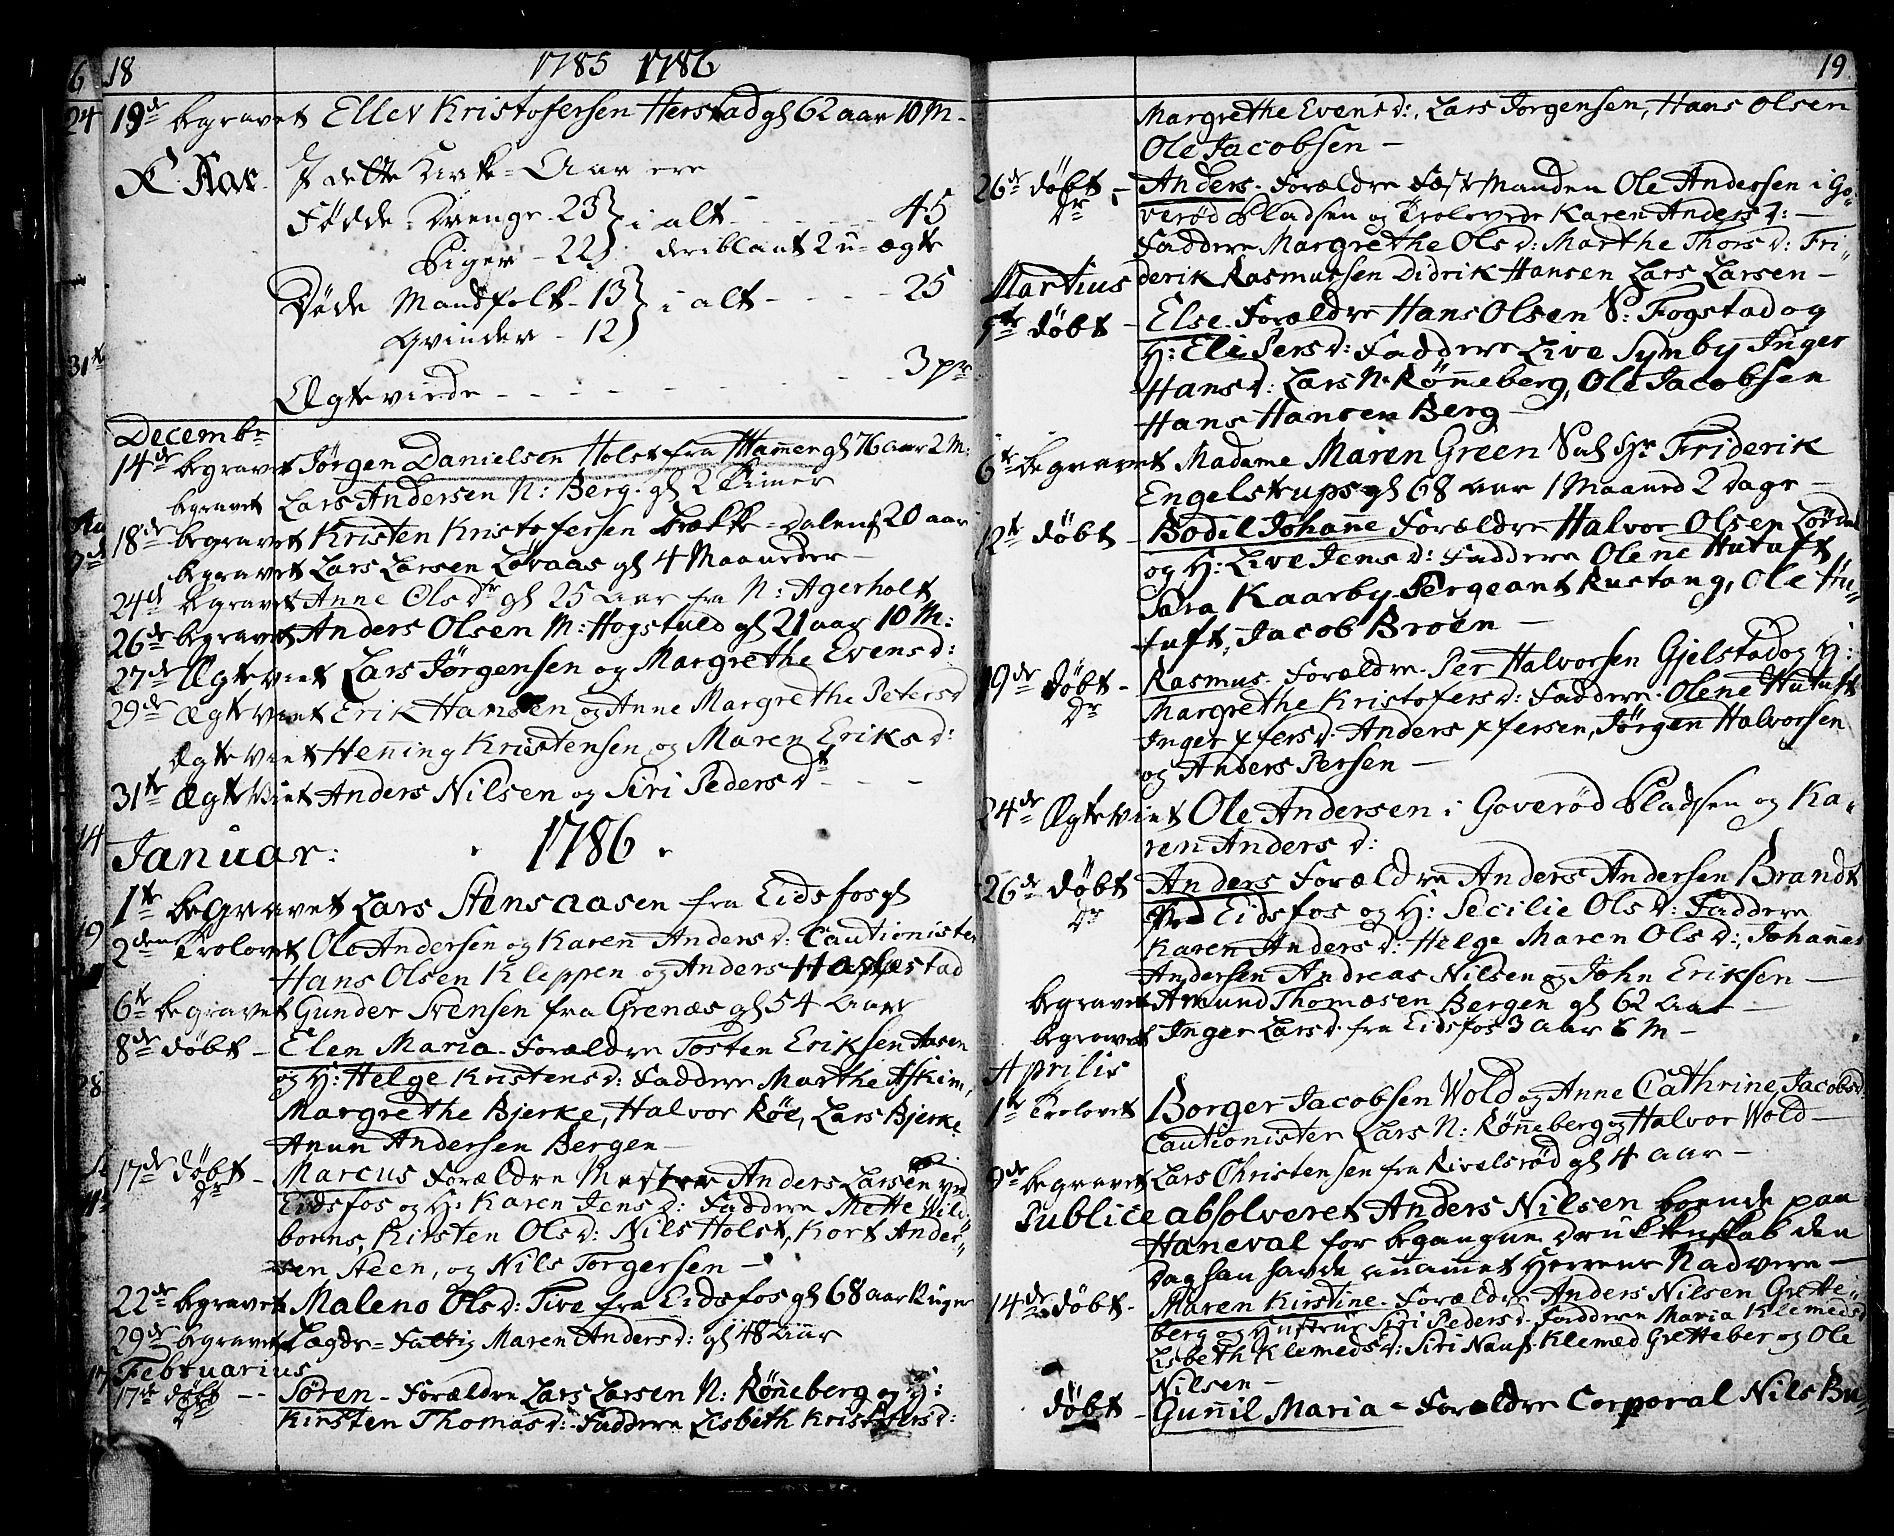 18 1785 1786
19de begravet Ellev Kristofersen Herstad gl 62 aar 10 M-
K: Aar. I dette Kirke-Aar ere
Fødde Drenge - 23 } i alt - - - - 45
Piger - 22 } deriblant 2 u-ægte
Døde Mandfolk - 13 } i alt - - - - 25
Qvinder - 12 }
Ægteviede - - - - - - - 3 pr
Decembr
14de begravet Jørgen Danielsen Holst fra Hammer gl 76 aar 2 M:
begravet Lars Andersen N: Berg. gl 2 Timer
18de begravet Kristen Kristofersen Bække-Dalen gl 20 aar
begravet Lars Larsen Løvaas gl 4 Maaneder -
24de begravet Anne Olsdr gl 25 aar fra N: Agerholt
26de begravet Anders Olsen M: Hogstuld gl 21 aar 10 M:
27de Ægteviet Lars Jørgensen og Margrethe Evensd:
29de Ægteviet Erik Hansen og Anne Margrethe Petersd
Ægteviet Henning Kristensen og Maren Eriksd:
31te Ægteviet Anders Nilsen og Siri Pedersdt - - -
Januar: 1786.
1te begravet Lars Stensaasen fra Eidsfos gl
2den Trolovet Ole Andersen og Karen Andersd: Cautionister
Hans Olsen Kleppen og Anders Hassestad
6te begravet Gunder Svensen fra Grenæs gl 54 Aar
8de døbt - Elen Maria - Forældre Tosten Eriksen Aasen
og H: Helge Kristensd: Faddere Marthe Askim,
Margrethe Bjerke, Halvor Røe, Lars Bjerke,
Anun Andersen Bergen -
17de døbt - Marcus Forældre Mester Anders Larsen ved
Eidsfos og H: Karen Jensd: Faddere Mette Wild-
borns, Kirsten Olsd: Nils Holst, Kort Ander-
sen Steen, og Nils Torgersen -
22de begravet Maleno Olsd: Tive fra Eidsfos gl 68 aar
29de begravet Lægds-Fattig Maren Andersd: gl 48 Aar
Februarius
17de døbt -- Søren - Forældre Lars Larsen N: Røneberg og H:
Kirsten Thomasd: Faddere Lisbeth Kristofersd:
19
Margrethe Evensd:, Lars Jørgensen, Hans Olsen
Ole Jacobsen -
26de døbt - Anders - Forældre Fæstemanden Ole Anderssen i Go-
dr verød Pladsen og Trolovede Karen Andersd: -
Faddere Margrethe Olsd: Marthe Thorsd: Fri-
Martius derik Rasmussen Didrik Hansen Lars Larsen -
5te døbt - Else - Forældre Hans Olsen N: Fogstad og
H: Eli Persd: Faddere Live Symby Inger
Hansd: Lars N: Røneberg, Ole Jacobsen
Hans Hansen Berg -
6te begravet Madame Maren Green Sal Hr Friderik
Engelstrups gl 68 aar 1 Maaned 2 Dage -
12te døbt - Bodil Johanne Forældre Halvor Olsen Lørdal
og H: Live Jensd: Faddere Olene Hutuft
Sara Kaarby Sergeant Rustang, Ole Hu-
tuft, Jacob Broen -
19de døbt - Rasmus - Forældre Per Halvorsen Gjelstad og H:
dr Margrethe Kristofersd: Faddere Olene Hutuft
Inger xfersd: Anders xfersen, Jørgen Halvorsen
og Anders Persen -
24de Ægteviet Ole Andersen i Goverød Pladsen og Ka-
ren Andersd:
26de døbt Anders Forældre Anders Andersen Brandt
dr ved Eidsfos og H: Secilie Olsd: Faddere
Karen Andersd: Helge Maren Olsd:, Johannes
Andersen Andreas Nilsen og John Eriksen -
begravet Amund Thomæsen Bergen gl 62 Aar -
begravet Inger Larsd. fra Eidsfos 3 aar 6 M -
Aprilis
1te Trolovet Borger Jacobsen Wold og Anne Cathrine Jacobsd:
Cautionister Lars N: Røneberg og Halvor Wold -
9de begravet Lars Christensen fra Rivelsrød gl 4 aar -
Publice absolveret Anders Nilsen boende paa
Haneval for begangen Drukkenskab den
Dag han havde annammet Herrens Nadvere -
14de døbt - Maren Kirstine - Forældre Anders Nilsen Grette-
berg og Hustrue Siri Pedersd. Faddere Maria Klemedsd
Lisbeth Klemedsd: Siri Nauf. Klemed Gretteber og Ole
Nilsen -
døbt - Gunnil Maria - Forældre Corporal Nils Bu-